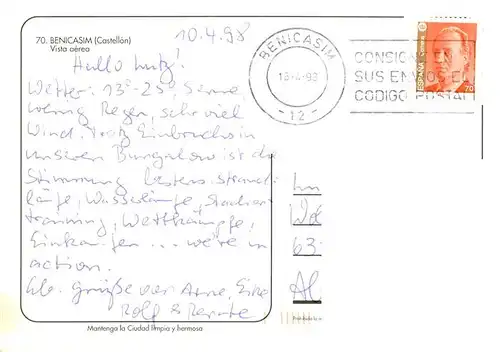 70. BENICASIM (Castellón)
Vista aérea
10.4.98
Hallo Lutz!
Wetter: 13°-25°, Sonne,
wenig Regen, sehr viel
Wind. Trotz Einbruchs in
unseren Bungalow ist die
Stimmung bestens. Strand-
läufe, Waldläufe, Stadion-
training, Wettkämpfe,
Einkaufen ... we're in
action.
Lb. Grüße von Arne, Eike
Rolf & Renate
Mantenga la Ciudad limpia y hermosa
BENICASIM
-12-
CONSIGNE EN
SUS ENVIOS EL
CODIGO POSTAL
ESPAÑA
70
63